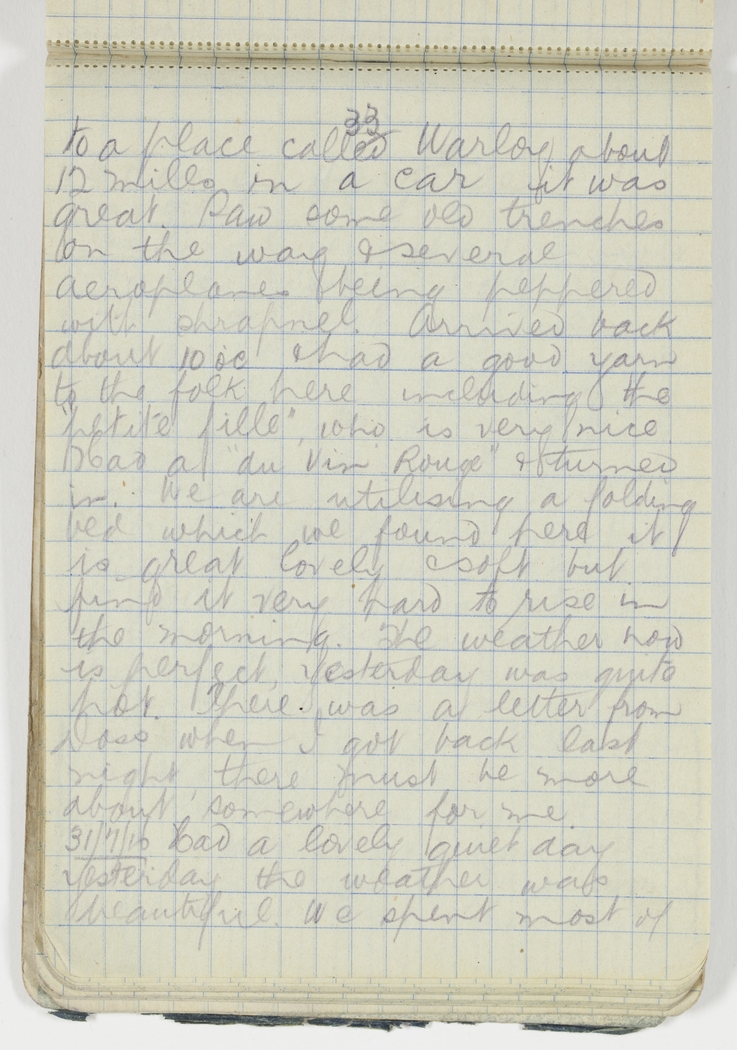 33
to a place called Warloy about
12 miles in a car it was
great. Saw some old trenches
on the way & several
aeroplanes being peppered
with shrapnel. Arrived back
about 10 oc & had a good yarn
to the folk here including the
"petite fille", who is very nice
Had a "du Vin Rouge" & turned
in. We are utilising a folding
bed which we found here it
is great lovely & soft but
find it very hard to rise in
the morning. The weather now
is perfect, yesterday was quite
hot. There was a letter from
when I got back last
night, there must be more
about somewhere for me
31/7/16 Had a lovely quiet day
yesterday the weather was
beautiful. We spent most of